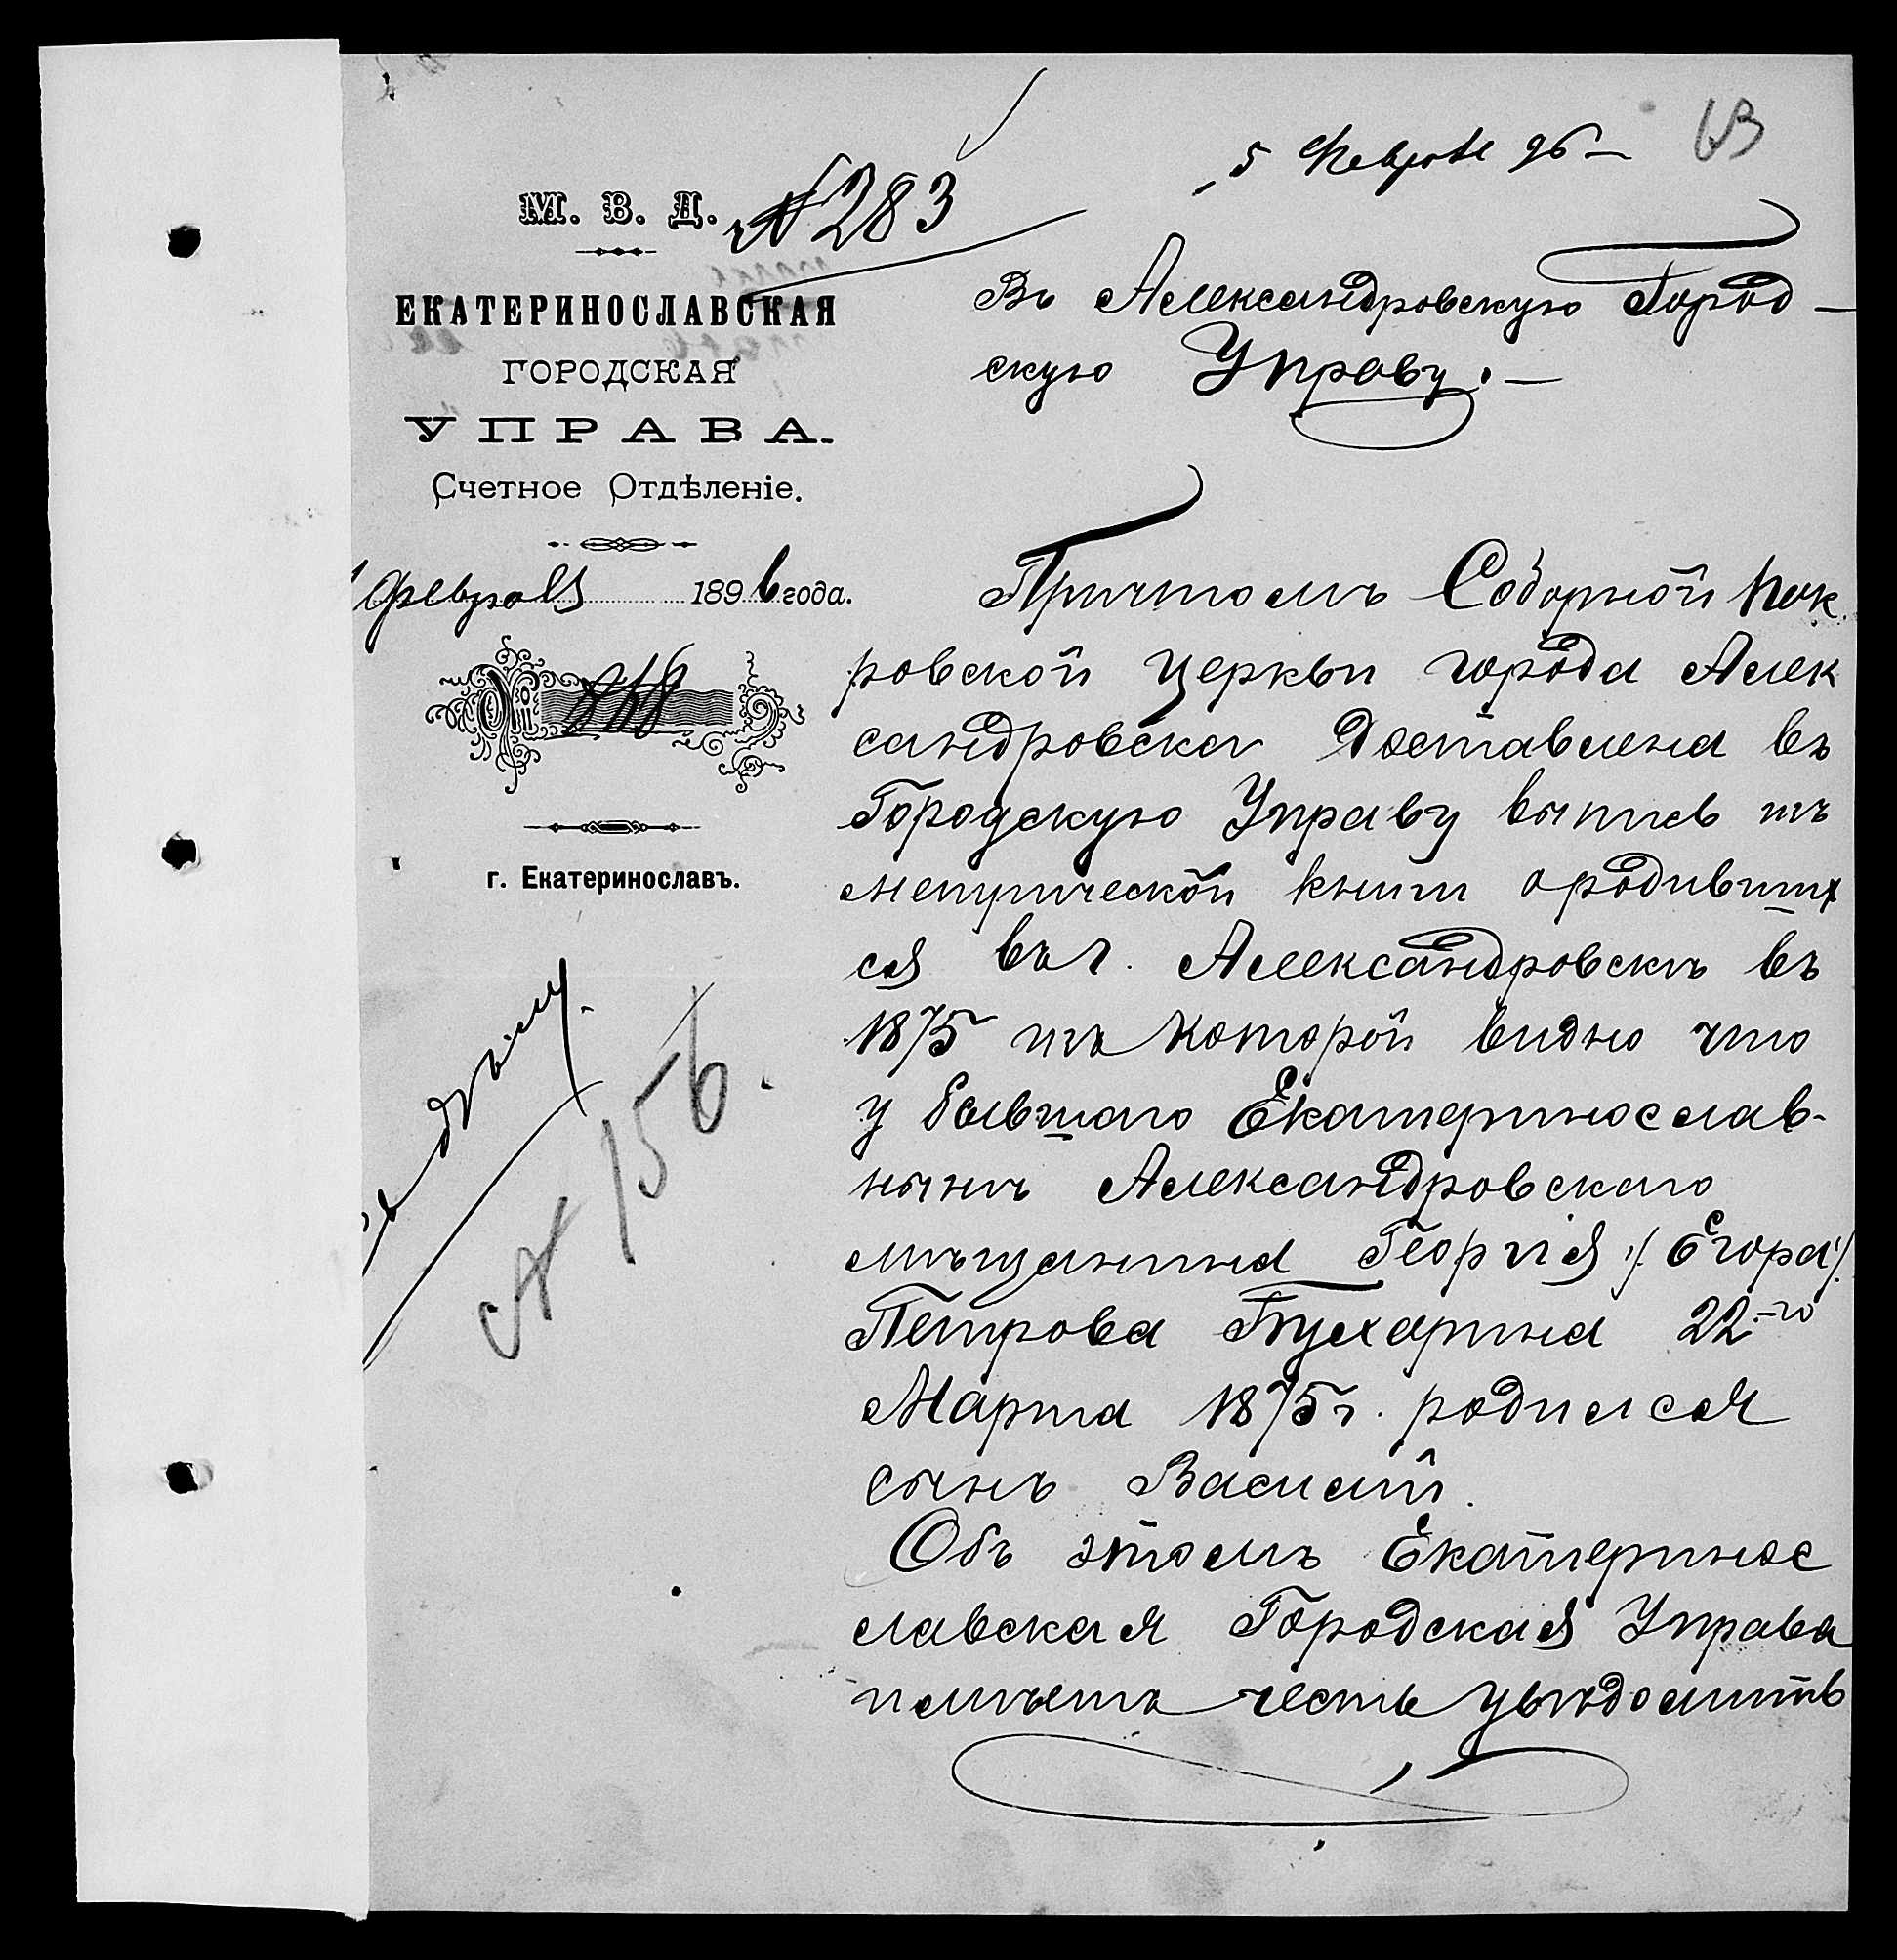 5 Февраля 96 —
63
М. В. Д.
№ 283
ЕКАТЕРИНОСЛАВСКАЯ
ГОРОДСКАЯ
УПРАВА.
Счетное Отдѣленіе.
Февраля 1896 года.
№
г. Екатеринославъ.
№ 156.
Въ Александровскую Город-
скую Управу. —
Причтомъ Соборной Пок
ровской церкви города Алек
сандровска доставлена въ
Городскую Управу выпись изъ
метрической книги о родивших
ся въ г. Александровскѣ въ
1875 изъ которой видно что
у бывшаго Екатеринослав-
нынѣ Александровскаго
мѣщанина Георгія /: Егора :/
Петрова Бухарина 22-го
Марта 1875 г. родился
сынъ Василій.
Объ этомъ Екатеринос
лавская Городская Управа
имѣетъ честь увѣдомить